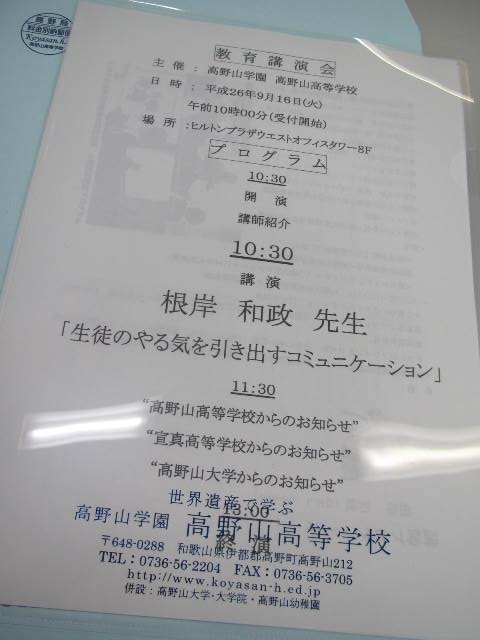 教育講演会
主 催 : 高野山学園 高野山高等学校
日 時 : 平成26年9月16日(火)
午前10時00分(受付開始)
場 所 :ヒルトンプラザウエストオフィスタワー8F
プログラム
10:30
開 演
講師紹介
10:30
講 演
根岸 和政 先生
「生徒のやる気を引き出すコミュニケーション」
11:30
“高野山高等学校からのお知らせ”
“宣真高等学校からのお知らせ”
“高野山大学からのお知らせ”
13:00
終 演
世界遺産で学ぶ
高野山学園 高野山高等学校
〒648-0288 和歌山県伊都郡高野町高野山212
TEL:0736-56-2204 FAX:0736-56-3705
http://www.koyasan-h.ed.jp
併設:高野山大学・大学院・高野山幼稚園
料金別納郵便
Koyasan-h.
高野山高等学校